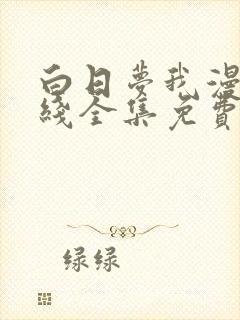 白日梦我漫
线全集免费
绿绿